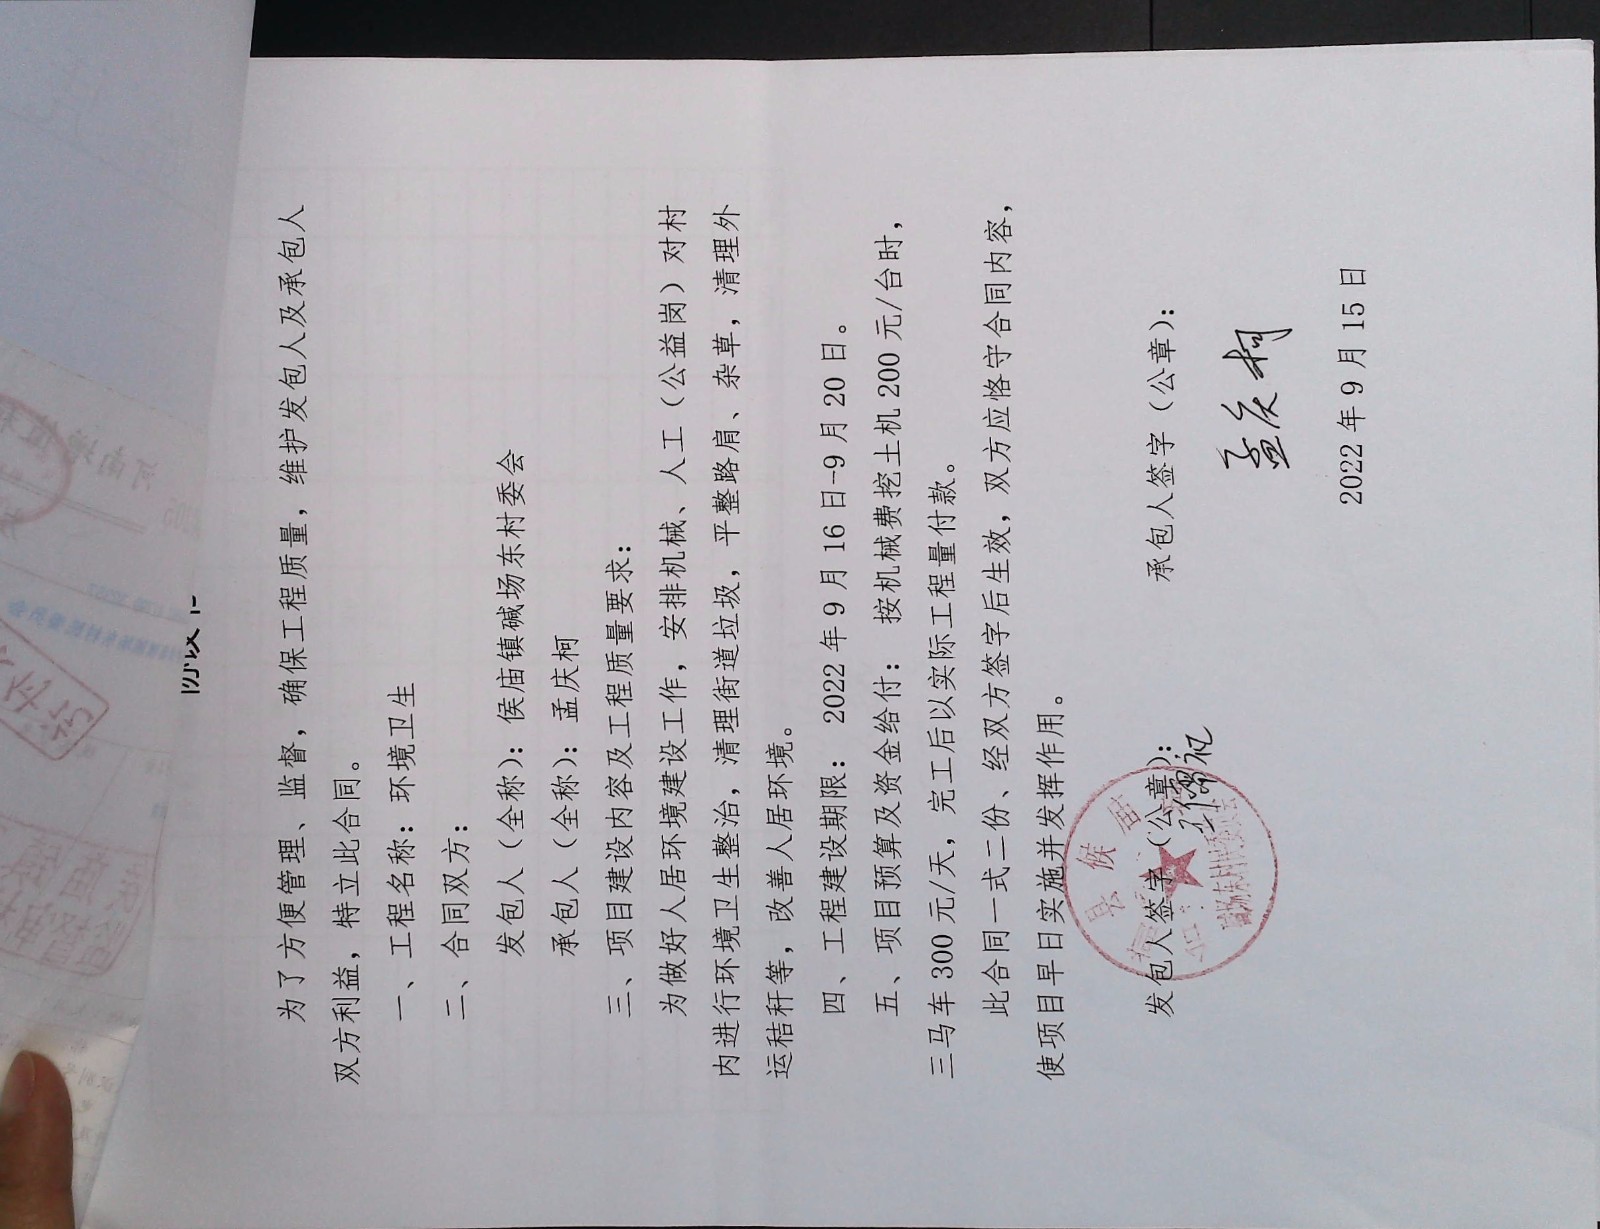 为了方便管理、监督，确保工程质量，维护发包人及承包人
双方利益，特立此合同。
一、工程名称：环境卫生
二、合同双方：
发包人（全称）：侯庙镇碱场东村委会
承包人（全称）：孟庆柯
三、项目建设内容及工程质量要求：
为做好人居环境建设工作，安排机械、人工（公益岗）对村
内进行环境卫生整治，清理街道垃圾，平整路肩、杂草，清理外
运秸秆等，改善人居环境。
四、工程建设期限： 2022 年 9 月 16 日-9 月 20 日。
五、项目预算及资金给付： 按机械费挖土机 200 元/台时，
三马车 300 元/天，完工后以实际工程量付款。
此合同一式二份、经双方签字后生效，双方应恪守合同内容，
使项目早日实施并发挥作用。
发包人签字（公章）： 承包人签字（公章）：
孟庆柯
2022 年 9 月 15 日